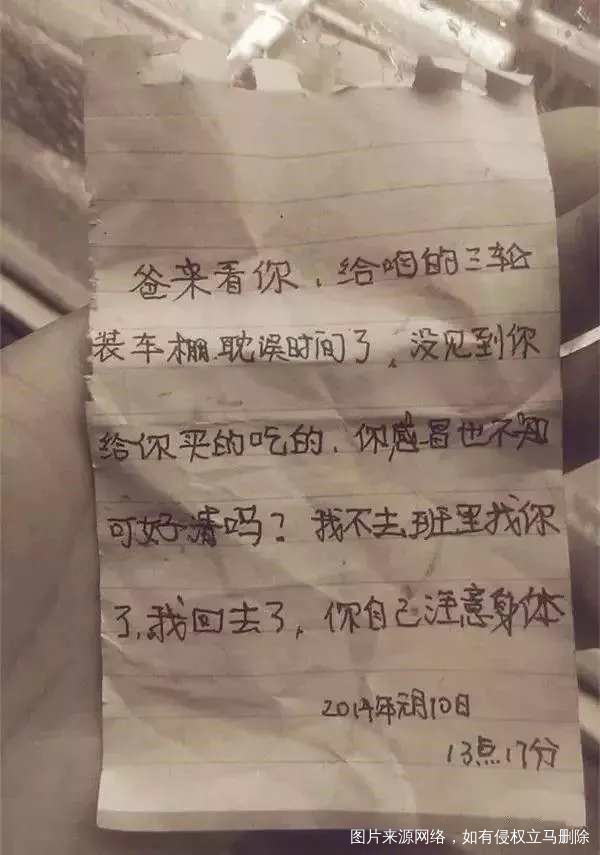 爸来看你，给咱的三轮
装车棚.耽误时间了，没见到你
给你买的吃的，你感冒也不知
可好清吗？我不去班里找你
了，我回去了，你自己注意身体
2014年元月10日
13点17分
图片来源网络，如有侵权立马删除